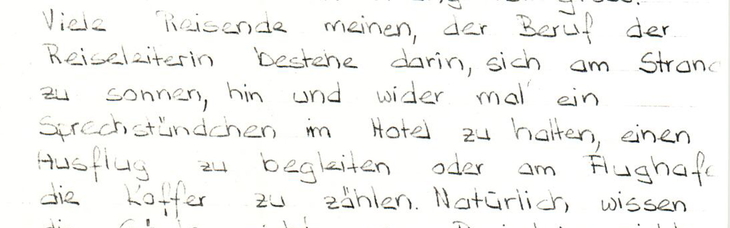 Viele Reisende meinen, der Beruf der
Reiseleiterin bestehe darin, sich am Stran
zu sonnen, hin und wider mal ein
Sprechstündchen im Hotel zu halten, einen
Ausflug zu begleiten oder am Flughafe
die Koffer zu zählen. Natürlich, wissen